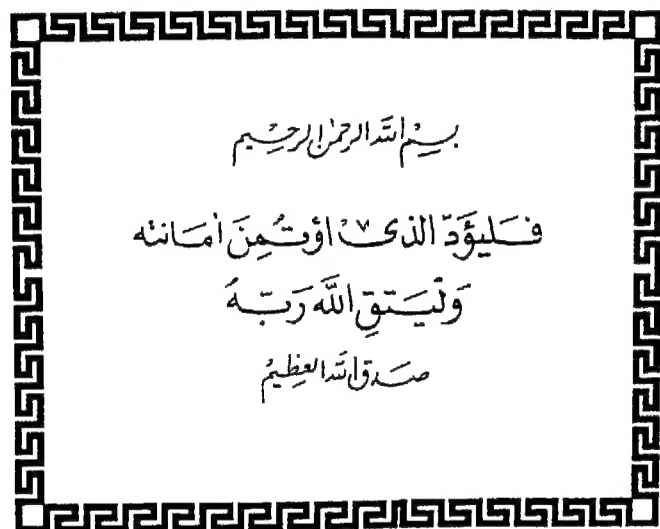 بسم الله الرحمن الرحيم
فليؤدّ الذى اؤتُمِنَ أمانته
وَلْيَتَّقِ اللَّهَ رَبَّهُ
صدق الله العظيم